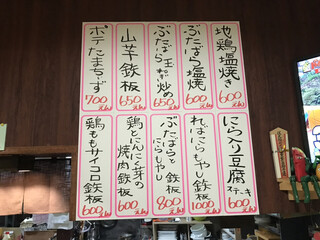 地鶏塩焼
600えん
ぶたばら塩焼
600えん
ぶたばら玉ねぎ炒め
650えん
山芋鉄板
650えん
ポテたまちーず
700えん
にら入り豆腐
ステーキ
600えん
ればにらもやし鉄板
1000えん
ぶたばらと
にらもやし
鉄板
800えん
鶏とにんにく芽の
焼肉鉄板
600えん
鶏ももサイコロ鉄板
600えん